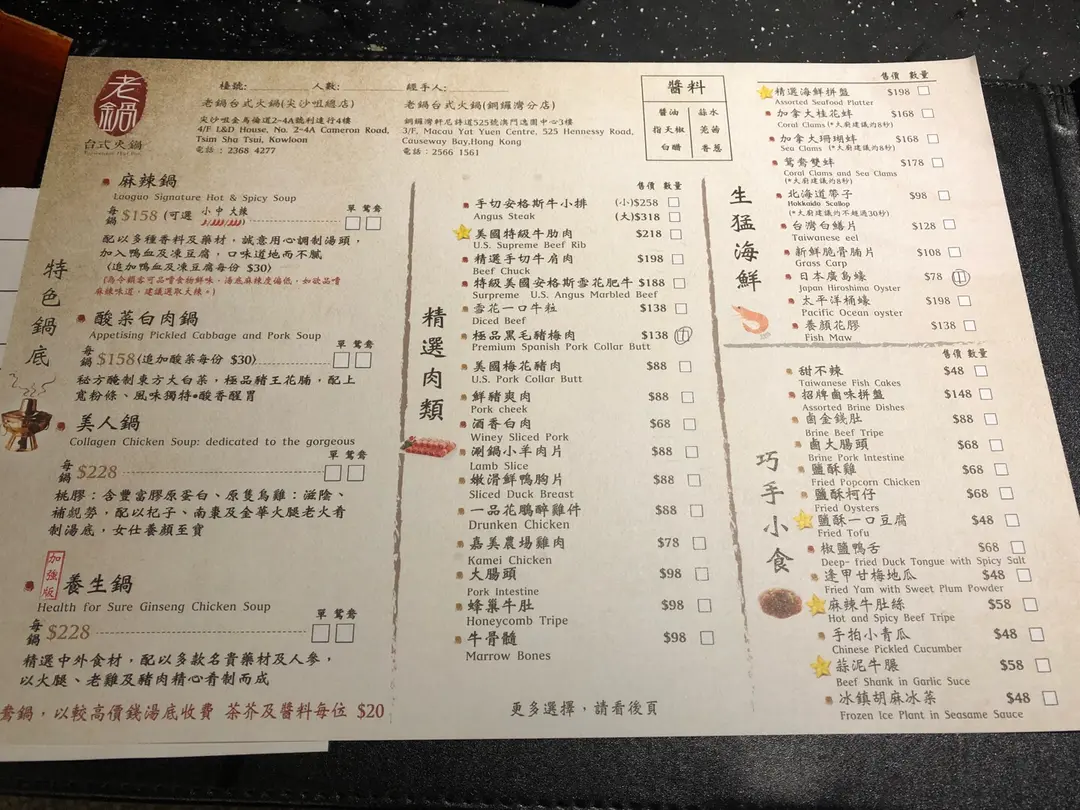 老鍋
台式火鍋
檯號:________人數:________ 經手人:________
老鍋台式火鍋(尖沙咀總店)
尖沙咀金馬倫道2-4A號利達行4樓
4/F L&D House, No. 2-4A Cameron Road,
Tsim Sha Tsui, Kowloon
電話：2368 4277
老鍋台式火鍋(銅鑼灣分店)
銅鑼灣軒尼詩道525號澳門逸園中心3樓
3/F, Macau Yat Yuen Centre, 525 Hennessy Road,
Causeway Bay,Hong Kong
電話：2566 1561
醬料
醬油 蒜水
指天椒 芫茜
白醋 香蔥
特色鍋底
麻辣鍋
Laoguo Signature Hot & Spicy Soup
單 鴛鴦
每鍋 $158 (可選 小 中 大辣
配以多種香料及藥材，誠意用心調制湯頭，
加入鴨血及凍豆腐，口味道地而不膩
(追加鴨血及凍豆腐每份 $30)
(為令顧客可品嚐食物鮮味，湯底麻辣度偏低，如欲品嚐
麻辣味道，建議選取大辣。)
酸菜白肉鍋
Appetising Pickled Cabbage and Pork Soup
單 鴛鴦
每鍋 $158 (追加酸菜每份 $30)
秘方醃制東方大白菜，極品豬王花腩，配上
寬粉條、風味獨特•酸香醒胃
美人鍋
Collagen Chicken Soup: dedicated to the gorgeous
單 鴛鴦
每鍋 $228
桃膠：含豐富膠原蛋白、原隻烏雞：滋陰、
補靚勢，配以杞子、南棗及金華火腿老火肴
制湯底，女仕養顏至寶
加強版
養生鍋
Health for Sure Ginseng Chicken Soup
單 鴛鴦
每鍋 $228
精選中外食材，配以多款名貴藥材及人參，
以火腿、老雞及豬肉精心肴制而成
鴦鍋，以較高價錢湯底收費 茶芥及醬料每位 $20
精選肉類
售價 數量
手切安格斯牛小排 (小)$258
Angus Steak (大)$318
美國特級牛肋肉 $218
U.S. Supreme Beef Rib
精選手切牛肩肉 $198
Beef Chuck
特級美國安格斯雪花肥牛 $188
Surpreme U.S. Angus Marbled Beef
雪花一口牛粒 $138
Diced Beef
極品黑毛豬梅肉 $138
Premium Spanish Pork Collar Butt
美國梅花豬肉 $88
U.S. Pork Collar Butt
鮮豬爽肉 $88
Pork cheek
酒香白肉 $68
Winey Sliced Pork
涮鍋小羊肉片 $88
Lamb Slice
嫩滑鮮鴨胸片 $88
Sliced Duck Breast
一品花鵰醉雞件 $88
Drunken Chicken
嘉美農場雞肉 $78
Kamei Chicken
大腸頭 $98
Pork Intestine
蜂巢牛肚 $98
Honeycomb Tripe
牛骨髓 $98
Marrow Bones
更多選擇，請看後頁
生猛海鮮
售價 數量
精選海鮮拼盤 $198
Assorted Seafood Platter
加拿大桂花蚌 $168
Coral Clams (*大廚建議約8秒)
加拿大珊瑚蚌 $168
Sea Clams (*大廚建議約8秒)
鴛鴦雙蚌 $178
Coral Clams and Sea Clams
(*大廚建議約8秒)
北海道帶子 $98
Hokkaido Scallop
(*大廚建議約不超過30秒)
台灣白鱔片 $128
Taiwanese eel
新鮮脆骨腩片 $108
Grass Carp
日本廣島蠔 $78
Japan Hiroshima Oyster
太平洋桶蠔 $198
Pacific Ocean oyster
養顏花膠 $138
Fish Maw
巧手小食
售價 數量
甜不辣 $48
Taiwanese Fish Cakes
招牌鹵味拼盤 $148
Assorted Brine Dishes
鹵金錢肚 $88
Brine Beef Tripe
鹵大腸頭 $68
Brine Pork Intestine
鹽酥雞 $68
Fried Popcorn Chicken
鹽酥柯仔 $68
Fried Oysters
鹽酥一口豆腐 $48
Fried Tofu
椒鹽鴨舌 $68
Deep- fried Duck Tongue with Spicy Salt
逢甲甘梅地瓜 $48
Fried Yam with Sweet Plum Powder
麻辣牛肚絲 $58
Hot and Spicy Beef Tripe
手拍小青瓜 $48
Chinese Pickled Cucumber
蒜泥牛𦟌 $58
Beef Shank in Garlic Suce
冰鎮胡麻冰菜 $48
Frozen Ice Plant in Seasame Sauce